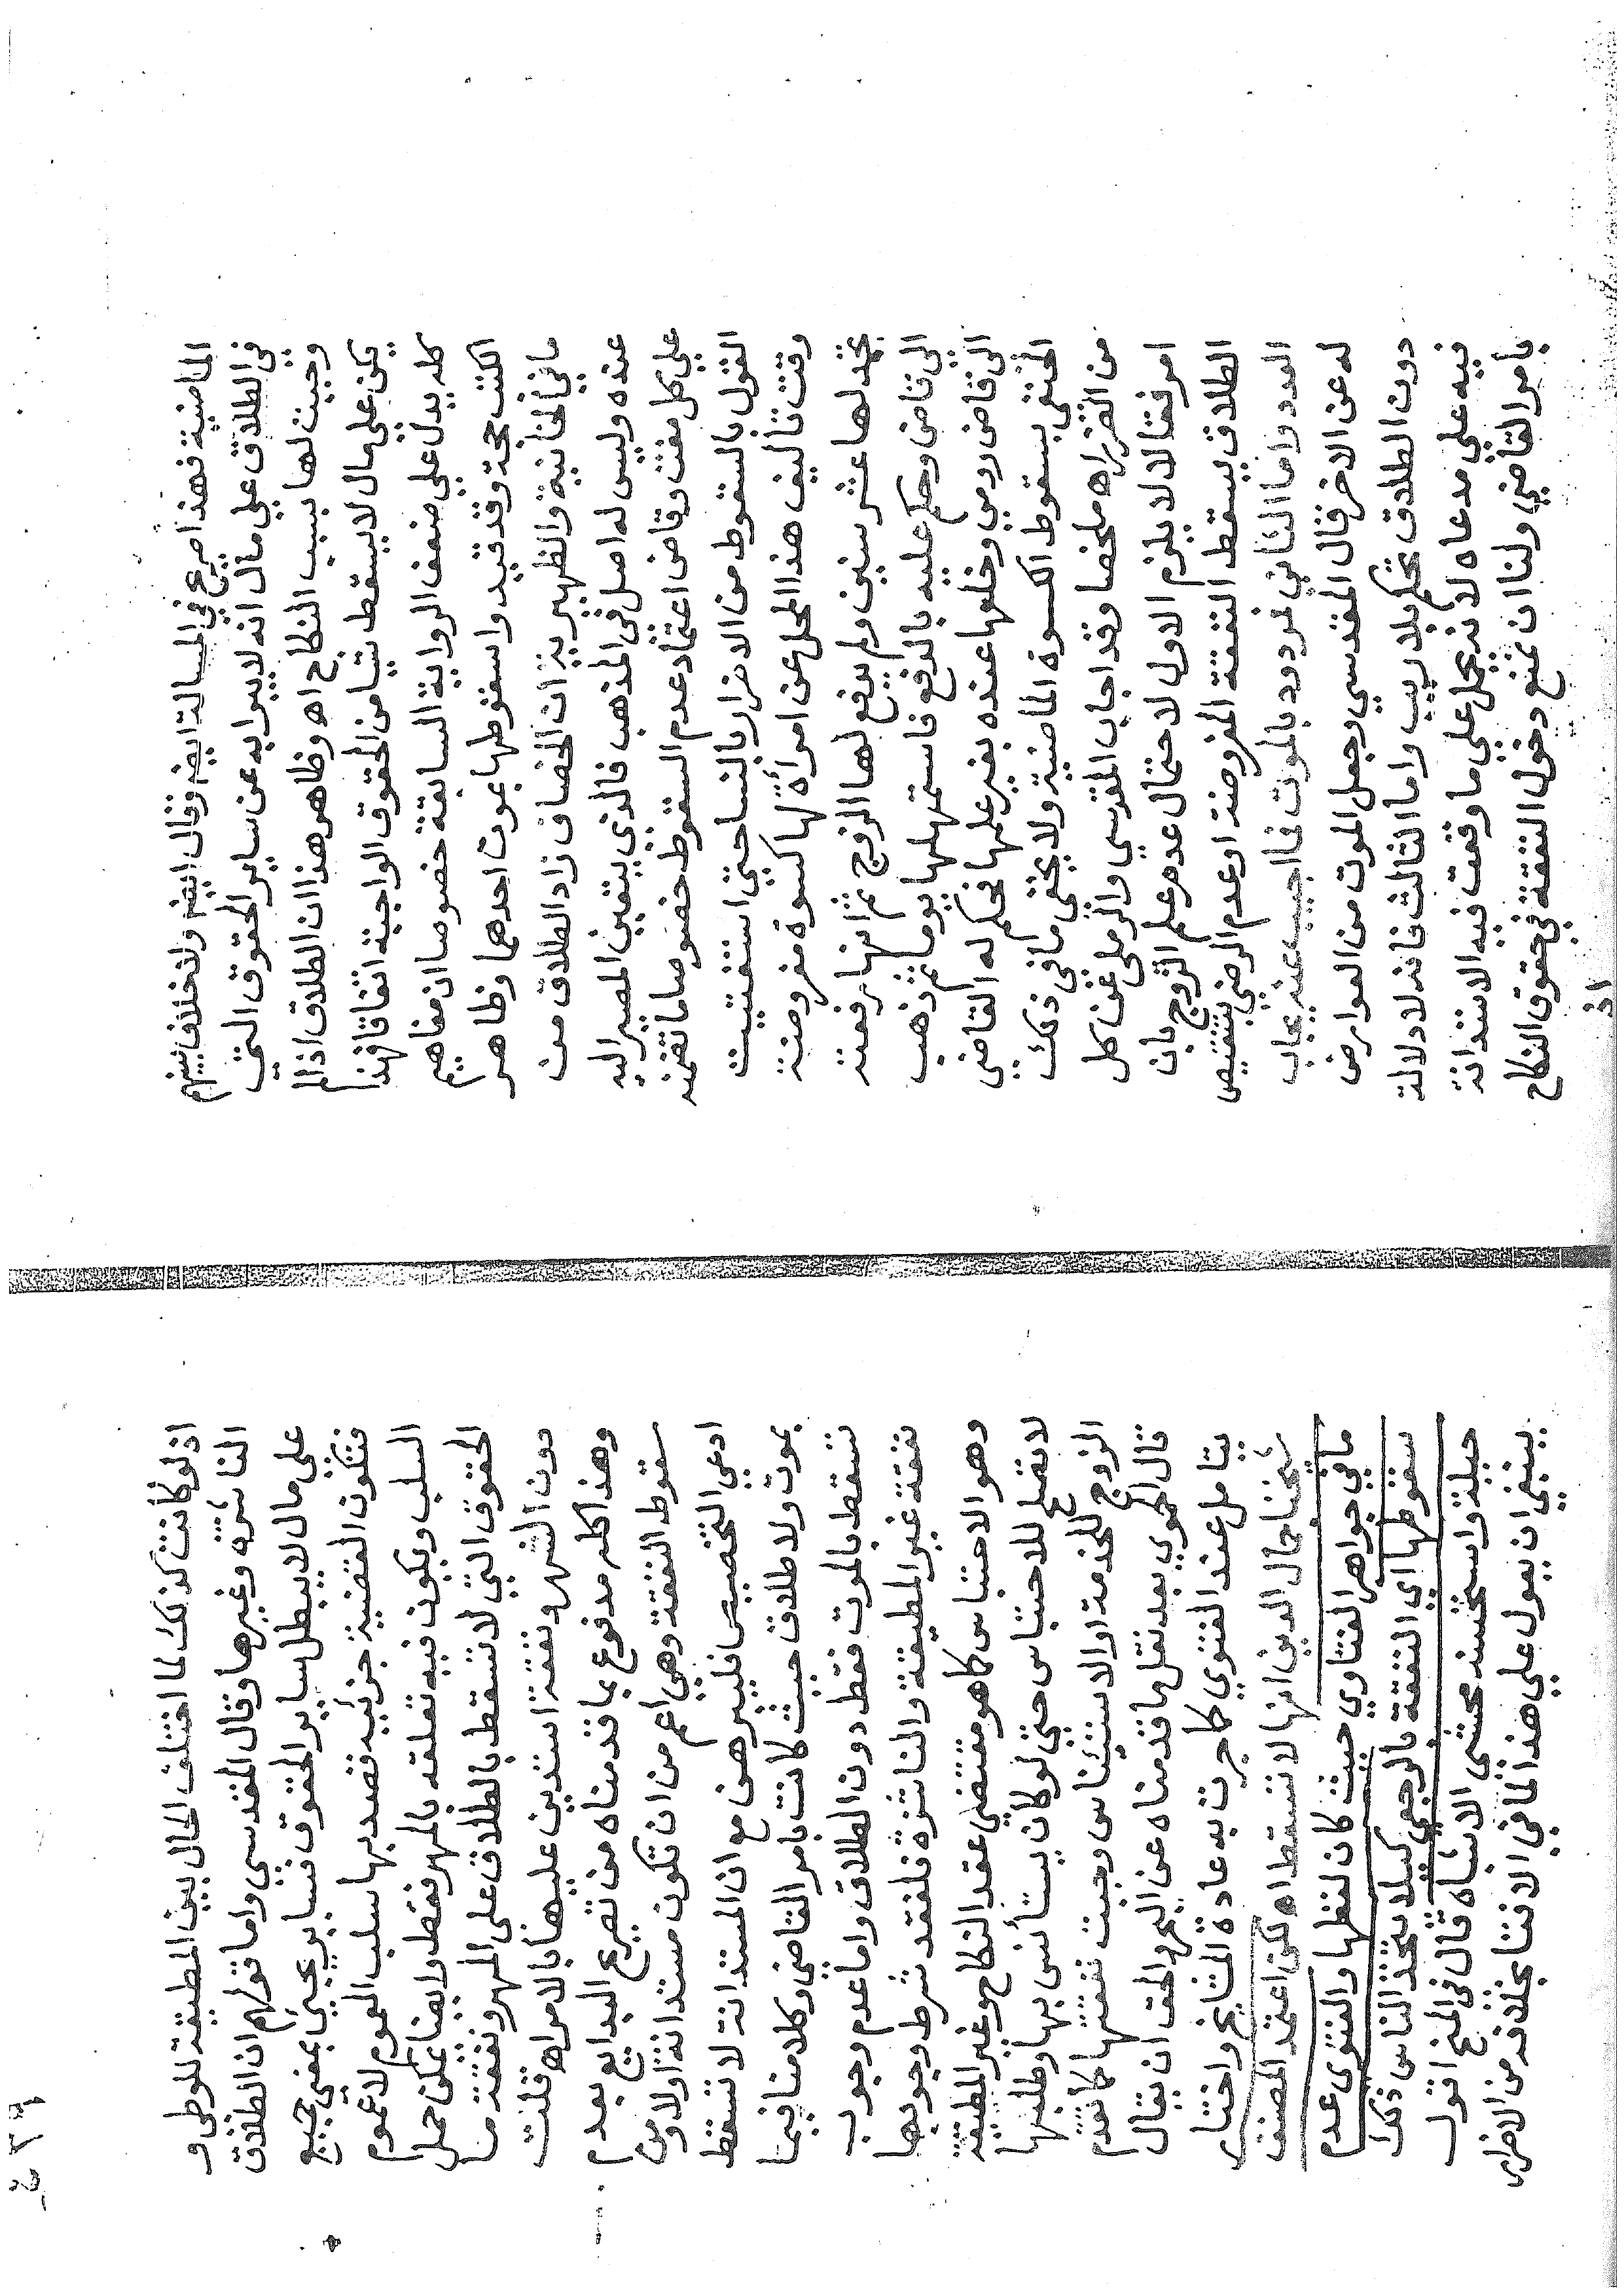 الماضية فهذا صريح في المسالة ايضا وقال ايضا ولا خلاف بينهم
في الطلاق علي مال انه لا يبرا به عن ساير الحقوق التي
وجبت لها بسبب النكاح اه وظاهر هذا ان الطلاق اذا لم
يكن علي مال لا يسقط شيا من الحقوق الواجبة اتفاقا فهذا
كله يدل علي ضعف الرواية السابقة خصوصا ان مفاهيم
الكتب حجة وقد قيدوا سقوطها بموت احدهما وظاهر
ما في الخانية والظهيرية ان الخصاف زاد الطلاق من
عنده وليس له اصل في المذهب فالذي يتعين المصير اليه
علي كل مفت وقاض اعتماد عدم السقوط خصوصا ما تضمنه
القول بالسقوط من الاضرار بالنسا حتي استفتيت
وقت تاليف هذا المحل عن امراة لها كسوة مفروضة
تجمد لها عشر سنين ولم يدفع لها الزوج ثم انها رفعته
الي قاض وحكم عليه بالدفع فاستمهلها يوما ثم ذهب
الي قاض رومي وخلعها عنده بغير علمها فحكم له القاضي
الحنفي بسقوط الكسوة الماضية ولا يخفي ما في ذلك
من الضرر اه ملخصا وقد اجاب المقدسي والرملي عن كل
امر فقالا لا يلزم الاول لاحتمال عدم علم الزوج بان
الطلاق يسقط النفقة المفروضة او عدم الرضي بتنقيص
العدد واما الثاني فردود بالموت فما اجيب عنه يجاب
له عن الاخر قال المقدسي وجعل الموت من العوارض
دون الطلاق تحكم بلا ريب واما الثالث فانه لا دلالة
فيه علي مدعاه لانه يحمل علي ما وقعت فيه الاستدانة
بامر القاضي ولنا ان نمنع دخول النفقة في حقوق النكاح
اذ
اذ لو كانت كذلك لما اختلف الحال بين المطيقة للوطي و
الناشزة وغيرها وقال المقدسي واما قولهم ان الطلاق
علي مال لا يبطل ساير الحقوق فساير يجيي بمعني جميع
فتكون القضية جزئية قصد بها سلب العموم لا عموم
السلب ويكون فيه تعلقه بالمهر فقط وايضا يمكن حمل
الحقوق التي لا تسقط بالطلاق علي المهر ونفقة ما
دون الشهر ونفقة استدين عليها بالامر اه قلت
وهذا كله مدفوع بما قدمناه من تصريح البدايع بعدم
سقوط النفقة وهي اعم من ان تكون مستدانة اولا ومن
ادعي التخصيص فليبرهن مع ان المستدانة لا تسقط
بموت ولا طلاق حيث كانت بامر القاضي وكلامنا فيما
تسقط بالموت فقط دون الطلاق واما عدم وجوب
نفقة غير المطيقة والناشزة فلفقد شرط وجوبها
وهو الاحتباس كما هو مقتضي عقد النكاح وغير المطيقة
لا تصلح للاحتباس حتي لو كان يستانس بها وطلبها
الزوج للخدمة او الاستيناس وجبت نفقتها كما تقدم
قال الحموي بعد نقل ما قدمناه عن البحر والحق ان يقال
يتامل عند الفتوي كما جرت به عادة المشايخ واختار
شيخنا جمال الدين انها لا تسقط اه لكن اعتمد المصنف
ما في جواهر الفتاوي حيث كان لفظها والفتوي عدم
سقوطها اي النفقة بالرجعي كيلا يتخذ الناس ذلك
حيلة واستحسنه محشي الاشباه قال في المنح اقول
ينبغي ان يعول علي هذا لما في الافتا بخلافه من الاضرار
٢٣٩